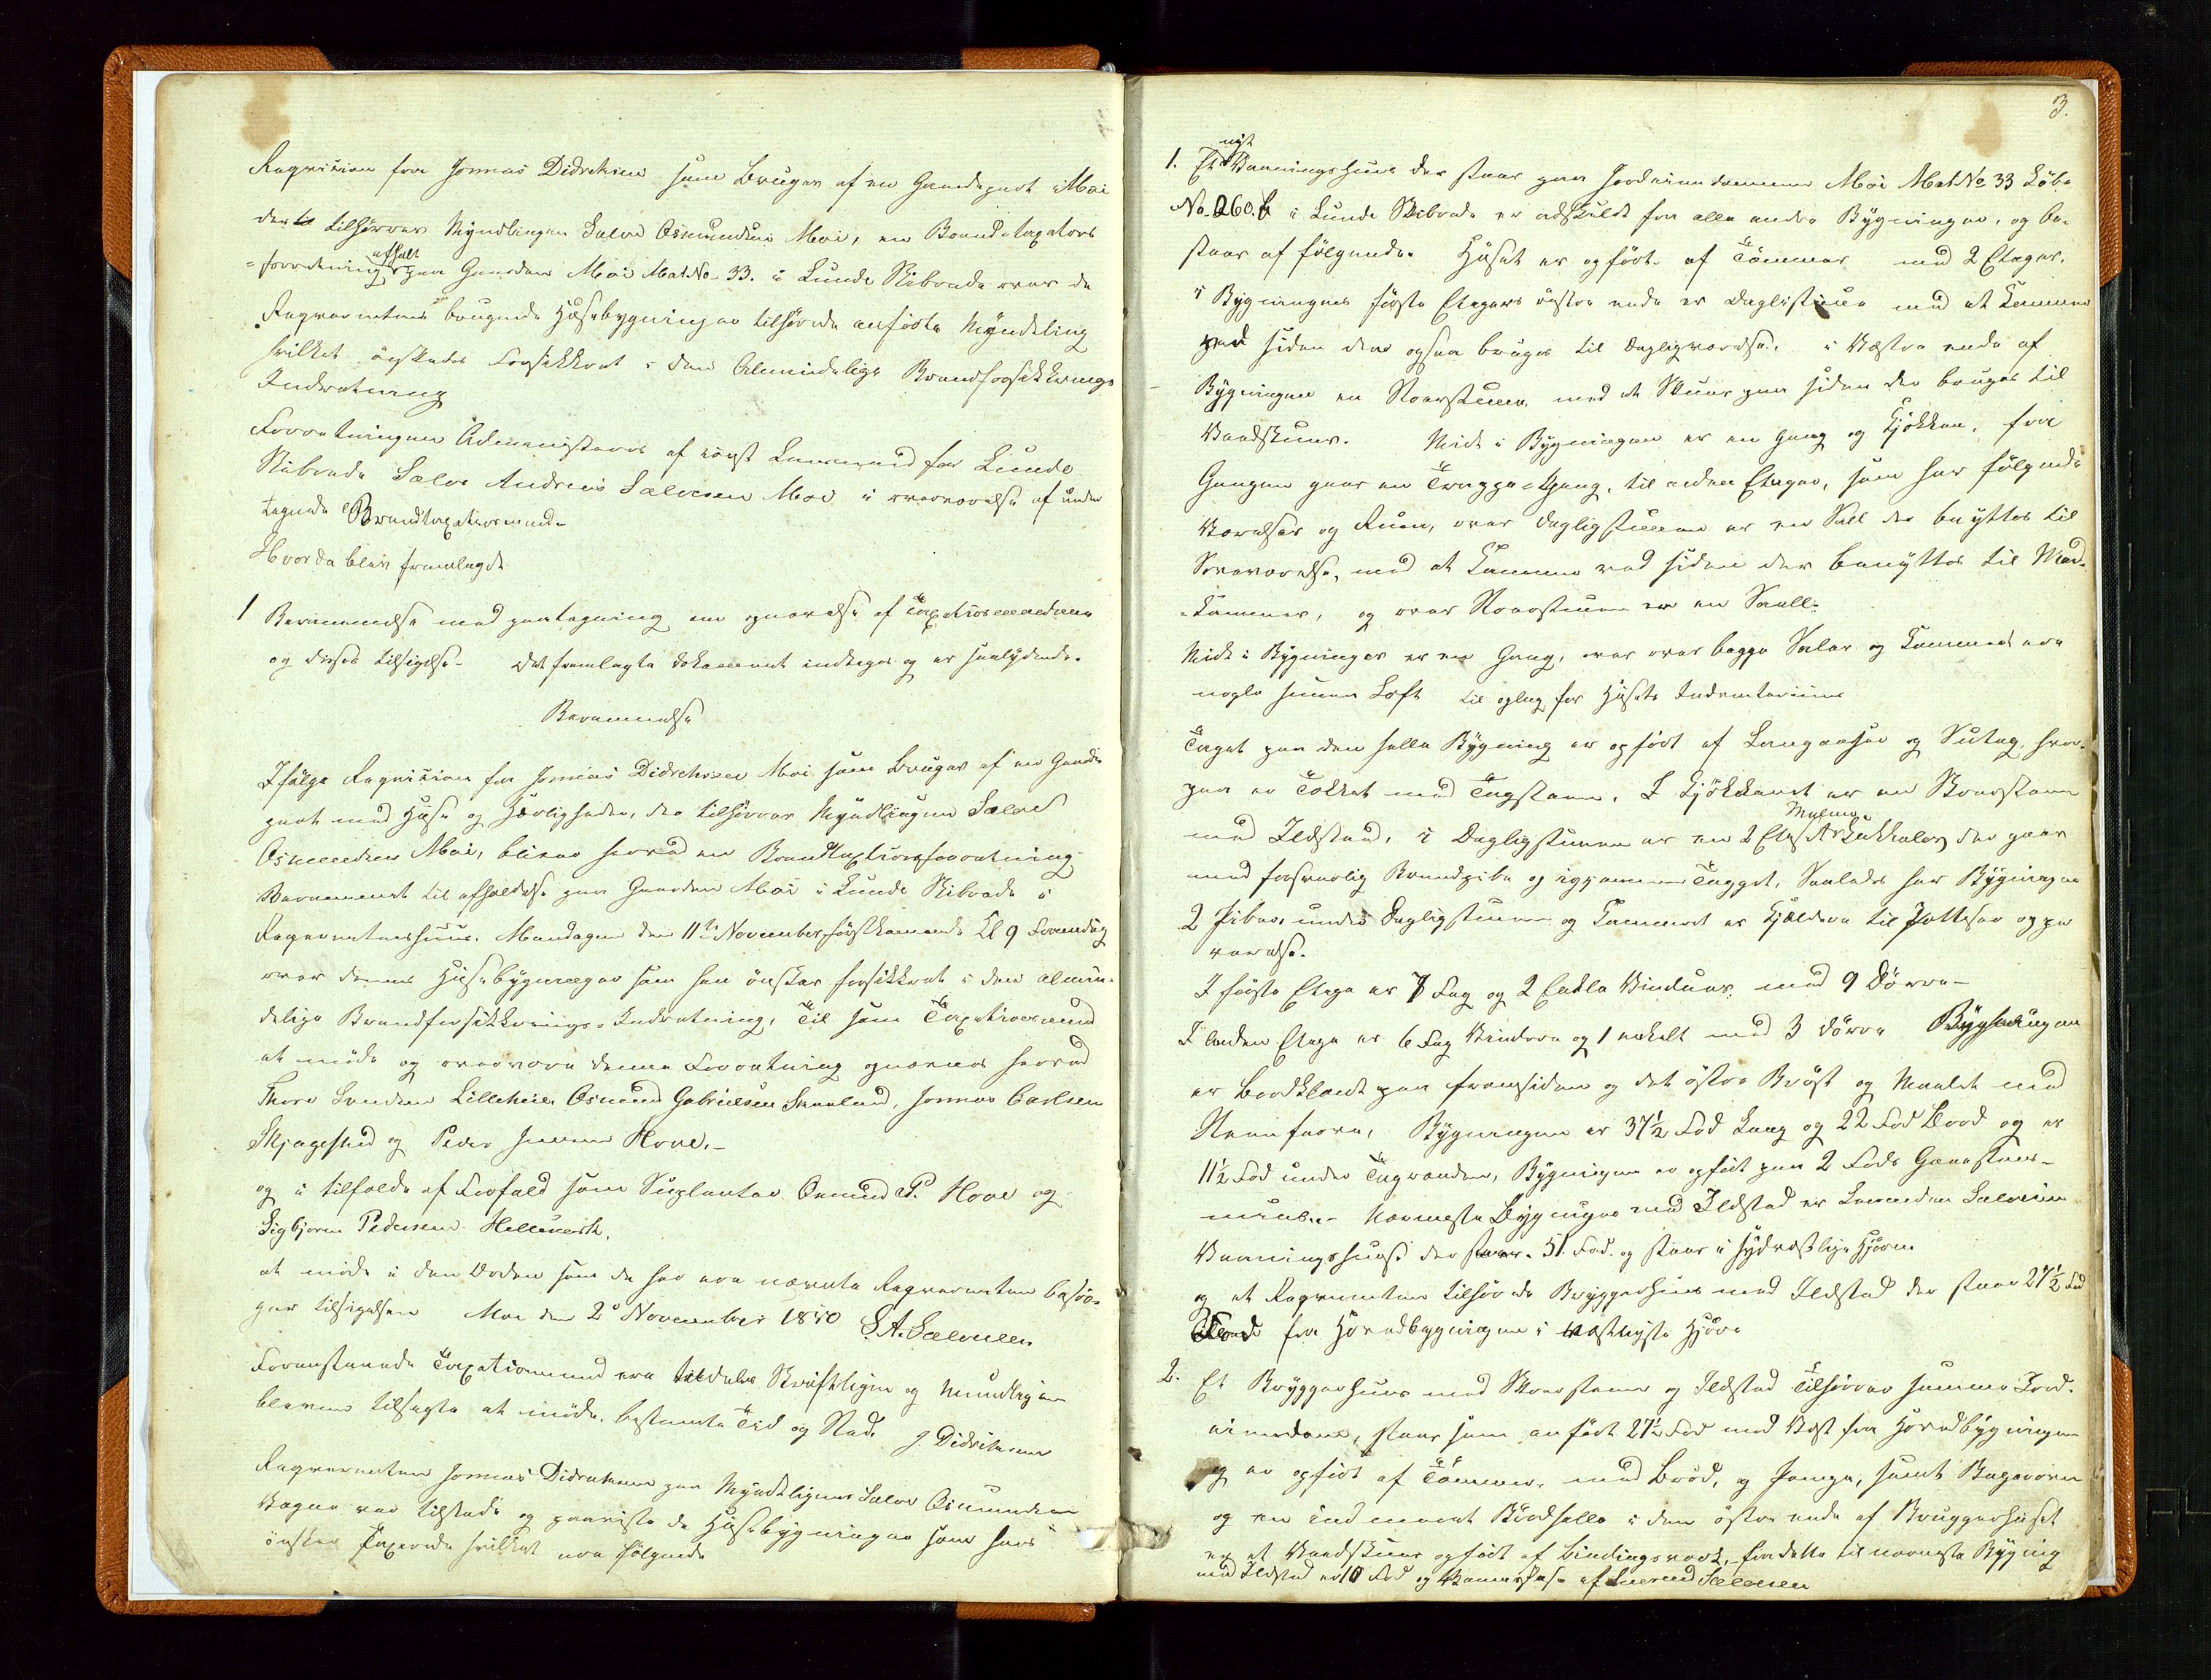 Reqvisition fra Jonnas Didrichsen som Bruger af en Gaardspart i Moi
der tilhörrer Myndlingen Salve Osmundsen Moi, en Brandtaxations
forretning afholt paa Gaarden Moi Mat. No 33. i Lunde Skibrede over de
Reqvirentens brugende Huusebygninger tilhörende anförte Myndling
hvilket önskedes Forsikkret i den Almindelige Brandforsikkrings
Indretning
Forretningen Administreres af const Lensmand for Lunde
Skibrede Salve Andreas Salvesen Moi i overværelse af under
tegnede Brandtaxationsmænd
Hvorda blev fremlagdt
1 Berammelse med paategning om opnævnelse af Taxationsmændene
og disses tilsigelse. Det fremlagte dokument indtages og er saalydende.
Berammelse
Ifölge Reqvisition fra Jonnas Didrichsen Moi som Bruger af en Gaards
part med Huse og Herligheder, der tilhörrer Myndlingen Salve
Osmundsen Moi, bliver herved en Brandtaxtionsforretning
Berammet til afholdelse paa Gaarden Moi i Lunde Skibrede i
Reqvirentenshuus. Mandagen den 11te November förstkomende Kl 9 Formidag
over denne Husebygninger som han önsker forsikkret i den almin-
delige Brandforsikkrings-Indretning, Til som Taxationsmænd
at möde og overvære denne Forretning opnævnes herved
Thore Svendsen Lilleheie Osmund Gabrielsen Skaaland, Jonnas Carlsen
Skjagestad og Peder Hove.-
og i tilfælde af Forfald som Suplanter Omund P. Hove og
Sigbjörn Pedersen Helleverk.
at möde i den Orden som de her ere nævnte Reqvirenten besör-
ger tilsigelsen Moi den 2d November 1850 S. A. Salvesen
Foranstaaende Taxationmænd ere tildeles Skriftligen og Mundtligen
blevene tilsagte at möde. bestemte Tid og Sted. J Didriksen
Reqvirenten Jonnas Didriksen paa Myndlignens Salve Osmundsen
Vegne var tilstede og paaviste de Husebygninger som han
önsker Taxerede hvilket ere fölgende
3.
1. Et nyt Vaaningshuus der staar paa Jordeiendommen Moi Mat No 33 Löbe
No. 260. b i Lunde Skibrede er adskildt fra alle andre Bygninger, og be-
staar af fölgende. Huset er opfört af Tömmer med 2 Etager.
i Bygningens förste Etagers östre ende er Daglistue med et Kammer
ved siden der ogsaa bruges til dagligværelse. i Væstre ende af
Bygningen en Storstue med et Skuur paa siden der bruges til
Vaadskuur. Midt i Bygningen er en gang og Kjökken, fra
Gangen gaar en Trappe-Gang, til anden Etage, som har fölgende
Værelser og Rum, over dagligstuen er en Sall der benyttes til
Soveværelse, med et Kammer ved siden der benyttes til Mad-
Kammer, og over Storstuen er en Sall.
Midt i Bygningen er en Gang, over begge Saler og Kammeret ere
nogle Loft til oplag for Husets Indventarium
Taget paa den helle Bygning er opfört af Langaaser og Sutag, hvor-
paa er Tekket med Tagsteen. I Kjökkenet er en Skorsteen
med Ildsted, i Dagligstuen er en 2 Etages Kakkelovn der gaar
med forsvarlig Brandpibe og igjennem Tagget, Saaledes har Bygningen
2 Piber. under Dagligstuen og Kammeret er Kjeldere til Potteser oppe
værelse.
I förste Etage er 7 Fag og 2 Enkle Vinduer. med 9 Dörre-
I anden Etage er 6 Fag Vindver og 1 enkelt med 3 dörre Bygningen
er Bordklædt paa framsiden og det östre Bröst og Maalet med
Bygningen er 37½ Fod Lang og 22 Fod Bred og er
11½ Fod under Tagranden, Bygningen er opfört paa 2 Fods Graasteens-
muur.- Nærmeste Bygninger med Ildsted er Lensmden Salvesens
Vaaningshuus der staar 51. Fod og staar i sydvæstlige Hjörne
og et Reqvirenten tilhörende Bryggerhuus med Ildsted der staar 27½ Fod
fra Hovedbygningen i Hjöre
2. Et Bryggerhuus med Skorsteen og Ildsted Tilhörrer samme Jord-
eiendom, staar som anfört 27½ Fod mod Vest fra Hovedbygningen
og er opfört af Tömmer, med Bröd, og Pange, samt Bageovn
og en indmuret Brödhelle i den östre ende af Bryggerhuset
er et Vaadskuur opfört af Bindingsværk, fra dette til nærmeste Bygning
med Ildsted er 10 Fod og Vaaneshuse af Lensmd Salvesen